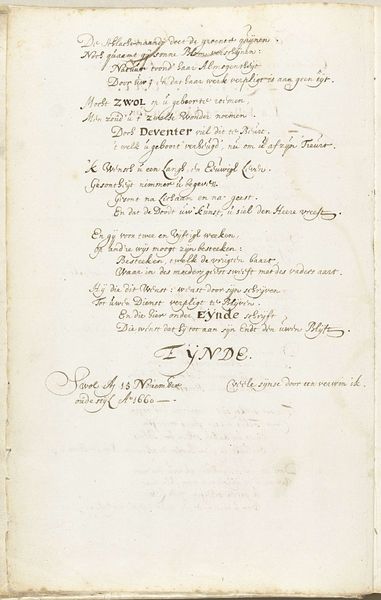 De Slachtmaandt doet de groente quijnen
Noch quaamt gij sonne Blom verschijnen:
Natuur trond haar Almogentheijt
Door hier, dat haar werk verpligt is aan geen tijt.
Mocht ZWOL in u geboorte roemen,
Men zoud u 't zwolse Wonder noemen:
Doch Deventer viel die te Beurt,
't welk u geboort verheugd, nu om u afzijn Treurt.
'k Wensch u een Langh, en Eeuwigh Leven,
Gesontheijt nemmer u begeven,
Gesont na Lichaam en na geest.
En dat de Doodt uw Kunst, u siel den Heere vreest.
En gij voor twee en Vijftigh weeken,
op andre wijs moogt zijn besteeken:
Besteeken, 't welk de vreugden baart,
Waar in des moeders geest sweeft met des vaders aart.
Hij die dit Wenst: wenst door sijn schrijven
Tot uwen Dienst verpligt te Blijven
En die hier onder Eynde schrijft
Die wenst dat hij tot aan sijn Endt den uwen Blijft.
EYNDE.
Swol Aij 15 November
oude stijl Ao 1660